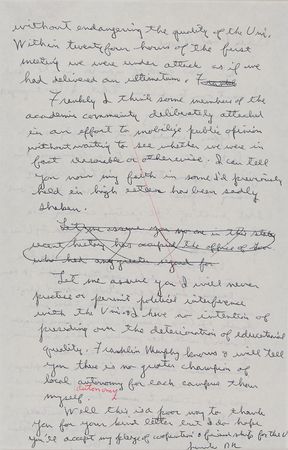 without endangering the quality of the Uni.
Within twenty four hours of the first
meeting we were under attack as if we
had delivered an ultimatum.
Frankly I think some members of the
academic community deliberately attacked
in an effort to mobilize public opinion
without waiting to see whether we were in
fact reasonable or otherwise. I can tell
you now my faith in some I'd previously
held in high esteem has been sadly
shaken.
Let me assure you no one in this state
has occupied the office of Gov.
who had any greater regard for
Let me assure you I will never
practice or permit political interference
with the Uni. & I have no intention of
presiding over the deterioration of educational
quality. Franklin Murphy knows & will tell
you there is no greater champion of
local autonomy for each campus than
autonomy
myself.
Well this is a poor way to thank
you for your kind letter but I do hope
you'll accept my pledge of cooperation & friendship for the U
RR